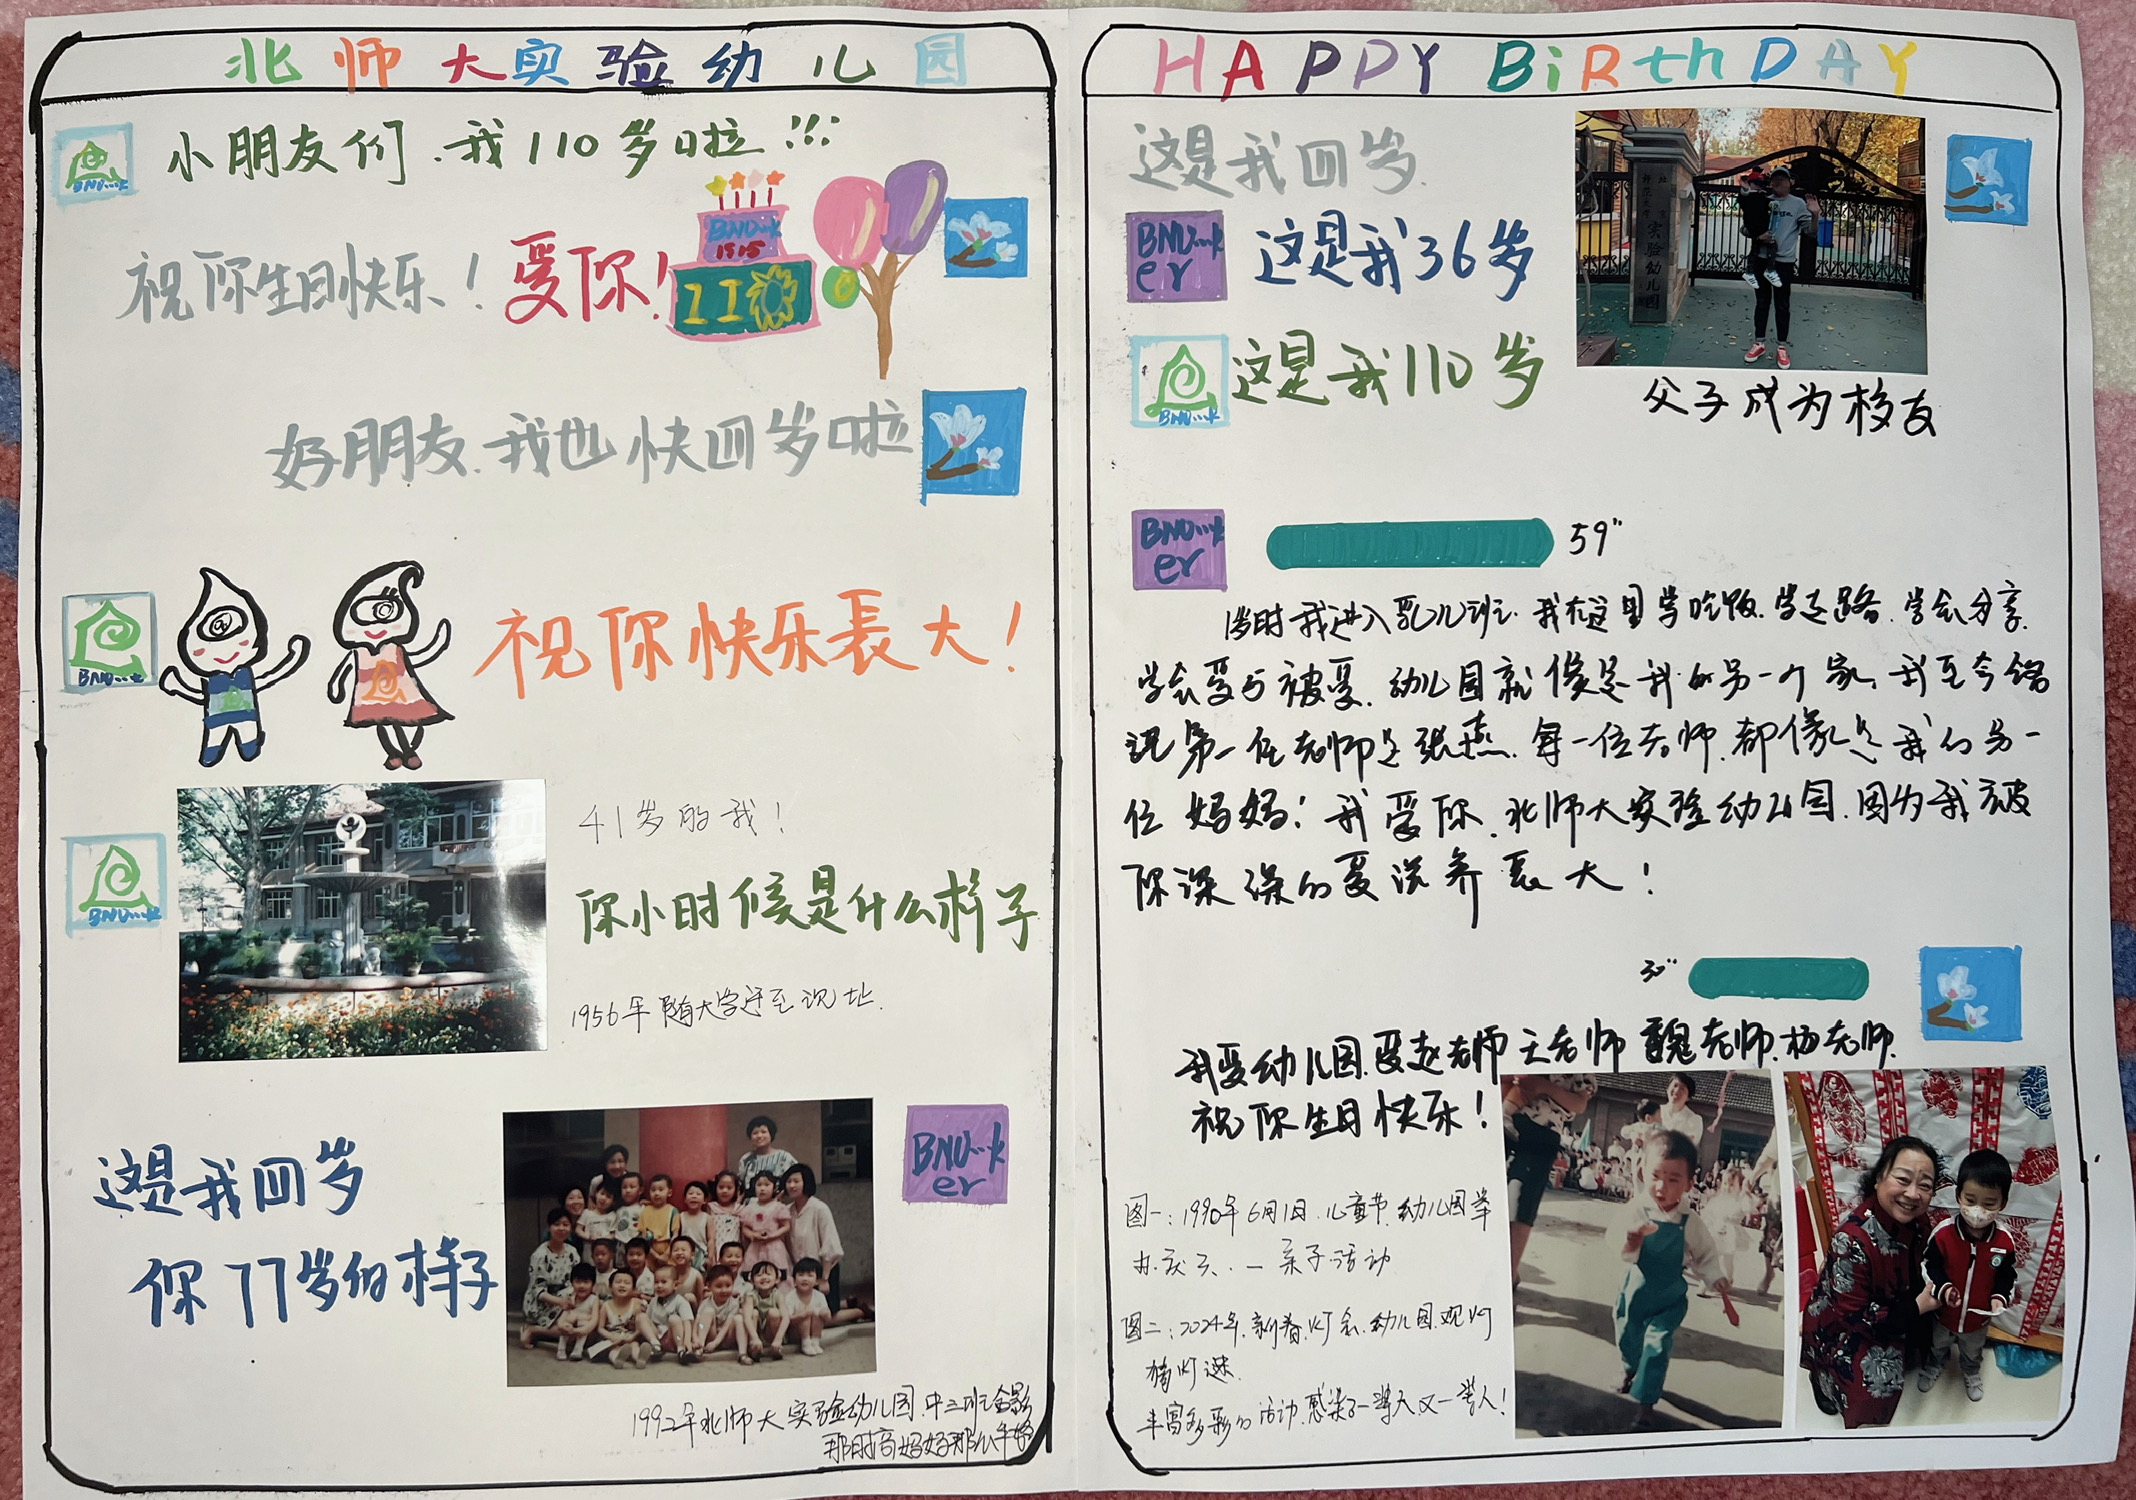 北师大实验幼儿园
小朋友们、我110岁啦!!!
BNU...k
祝你生日快乐！爱你！
BNU...k
1915
110
好朋友、我也快四岁啦
祝你快乐長大！
BNU...k
41岁的我！
你小时候是什么样子
BNU...k
1956年随大学迁至现址.
这是我四岁
你77岁的样子
BNU...k
er
1992年北师大实验幼儿园.中三班合影
那时高妈妈那么年轻
HAPPY BiRthDAY
这是我四岁.
BNU...k
er
这是我36岁
这是我110岁
BNU...k
实验幼儿园
父子成为校友
BNU...k
er
59"
1岁时我进入乳儿班.我在这里学吃饭.学走路.学会分享.
学会爱与被爱.幼儿园就像是我的另一个家,我至今铭
记第一任老师是张燕.每一位老师.都像是我的另一
位妈妈！我爱你、北师大实验幼儿园.因为我被
你深深的爱滋养長大！
30"
我爱幼儿园.爱赵老师 王老师 魏老师.杨老师.
祝你生日快乐！
图一：1990年6月1日.儿童节.幼儿园举
办庆六.一亲子活动
图二：2024年.新春.灯会.幼儿园.观灯
猜灯谜.
丰富多彩的活动.感染了一辈人又一辈人！